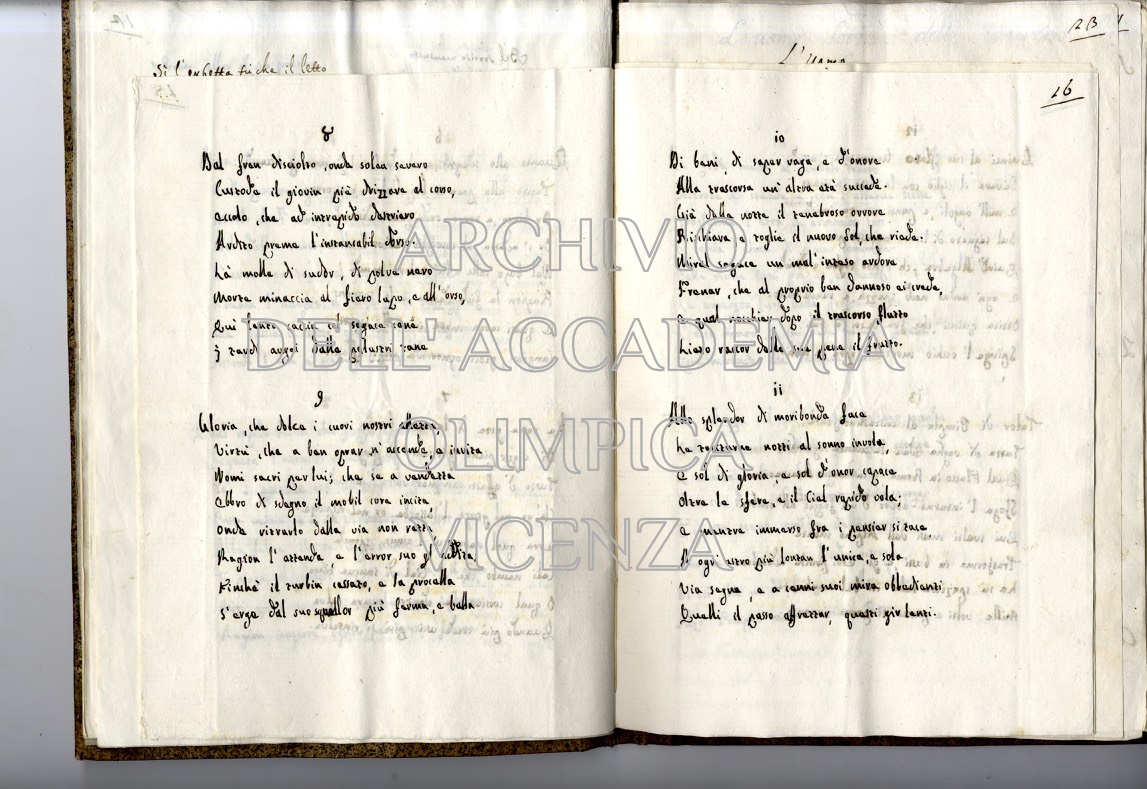 Sì l'erbetta fu che il letto
8
Dal fren disciolto, onde solea severo
Custode il giovin piè drizzare al corso,
Eccolo, che ad intrepido destriero
Ardito preme l'instancabil dorso.
La molle di sudor, di polve nero
Morte minaccia al fiero lupo, e all' orso,
Qui lento caccia col segace cane
I tardi augei dalle palustri tane
9
Gloria, che dolce i cuori nostri alletta,
Virtù, che a ben oprar n'accende, e invita
Nomi sacri per lui; che se a vendetta
Ebbro di sdegno il mobil core incita
Onde ritrarlo dalla via non retta
Ragion l'attende, e l'error suo gl'addita,
Finchè il turbin cessato, e la procella
S'erge dal suo squallor più ferma, e bella
L'uomo
2B
26
10
Di beni, di saper vaga, e d'onore
Alla trascorsa un'altra età succede.
Già della notte il tenebroso orrore
Rischiara, e toglie il nuovo Sol, che riede.
Mirel segace un mal'inteso ardore
Frenar, che al proprio ben dannoso ei crede,
E qual nocchier dopo il trascorso flutto
Lieto raccor delle sue pene il frutto.
11
Allo splendor di moribonda face
Le taciturne notti al sonno invola,
E sol di gloria, e sol d'onor capace
Oltre le sfere, e il Ciel rapido vola;
E mentre immerso fra i pensier si tace
D' ogn'altro più lontan l'unica, e sola
Via segna, e a cenni suoi mira obbedienti
Quelli il passo affrettar, questi gir lenti.
ARCHIVIO
DELL'ACCADEMIA
OLIMPICA
VICENZA